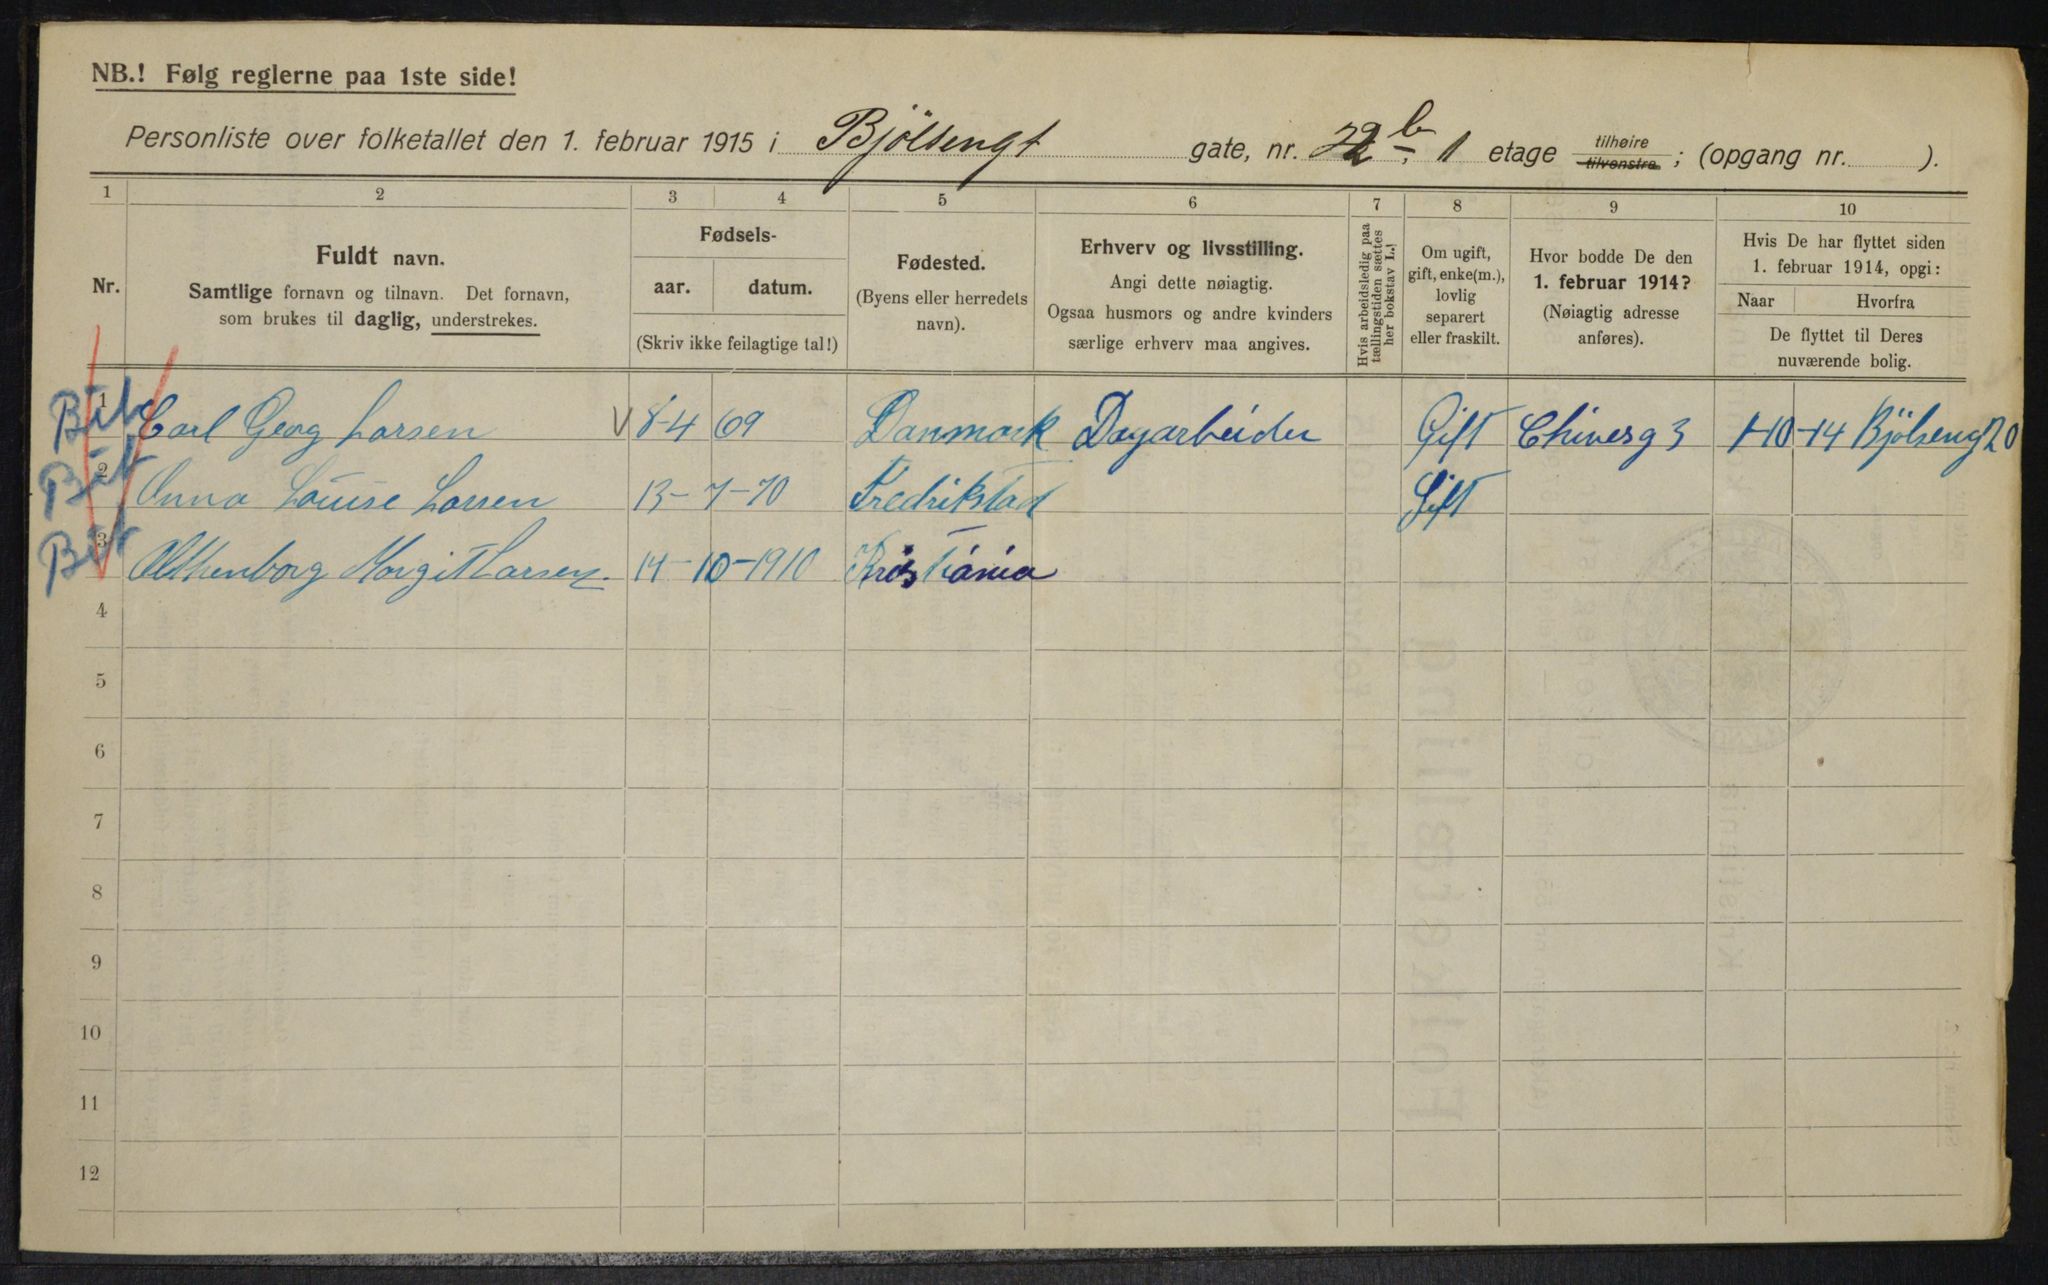 NB.! Følg reglerne paa 1ste side!
Personliste over folketallet den 1. februar 1915 i Bjölsengt gate, nr. 22 b, 1 etage tilhøire tilvenstre ; (opgang nr. ).
1 2 3 4 5 6 7 8 9 10
Nr.
Fuldt navn.
Samtlige fornavn og tilnavn. Det fornavn,
som brukes til daglig, understrekes.
Fødsels-
aar. datum.
(Skriv ikke feilagtige tal!)
Fødested.
(Byens eller herredets
navn).
Erhverv og livsstilling.
Angi dette nøiagtig.
Ogsaa husmors og andre kvinders
særlige erhverv maa angives.
Hvis arbeidsledig paa
tællingstiden sættes
her bokstav L.!
Om ugift,
gift, enke(m.),
lovlig
separert
eller fraskilt.
Hvor bodde De den
1. februar 1914?
(Nøiagtig adresse
anføres).
Hvis De har flyttet siden
1. februar 1914, opgi:
Naar Hvorfra
De flyttet til Deres
nuværende bolig.
1 Carl Georg Larsen V 8-4 69 Danmark Dagarbeider Gift Chivesg 3 1-10-14 Bjölseng 20
2 Anna Louise Larsen 13-7-70 Fredrikstad Gift
3 Margit Larsen. 14-10-1910 Kristiania
4
5
6
7
8
9
10
11
12